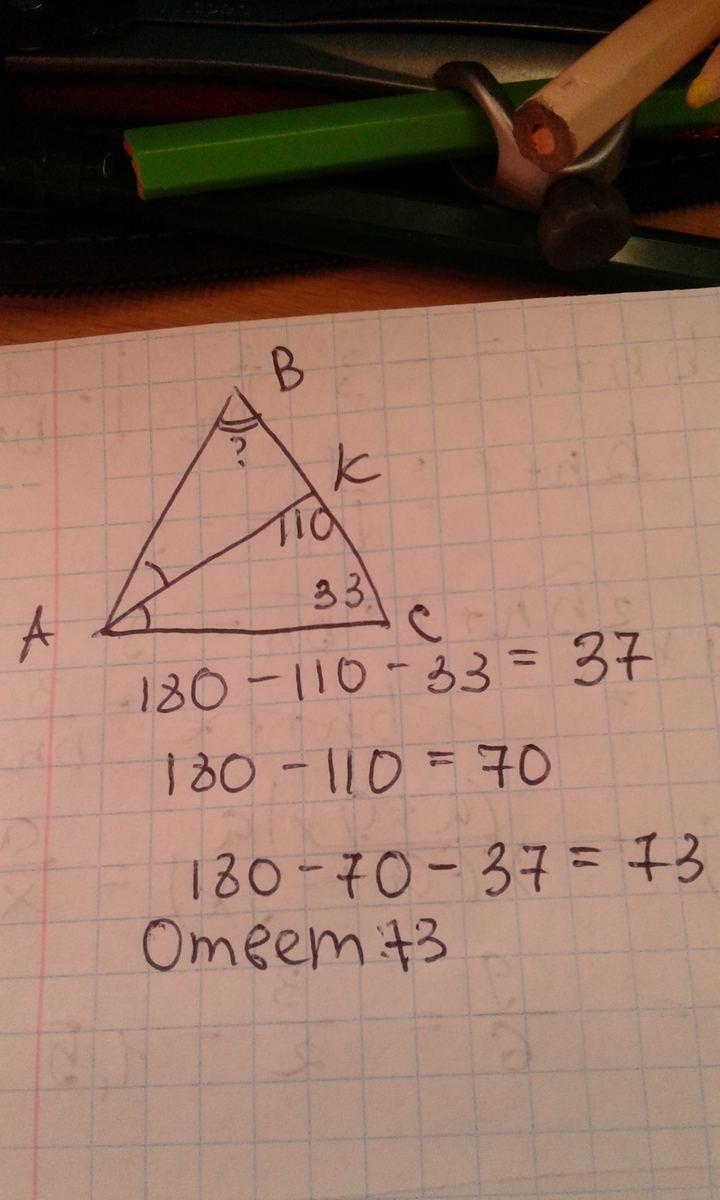 B
?
K
110
33
A
C
180 - 110 - 33 = 37
180 - 110 = 70
180 - 70 - 37 = 73
Ответ: 73